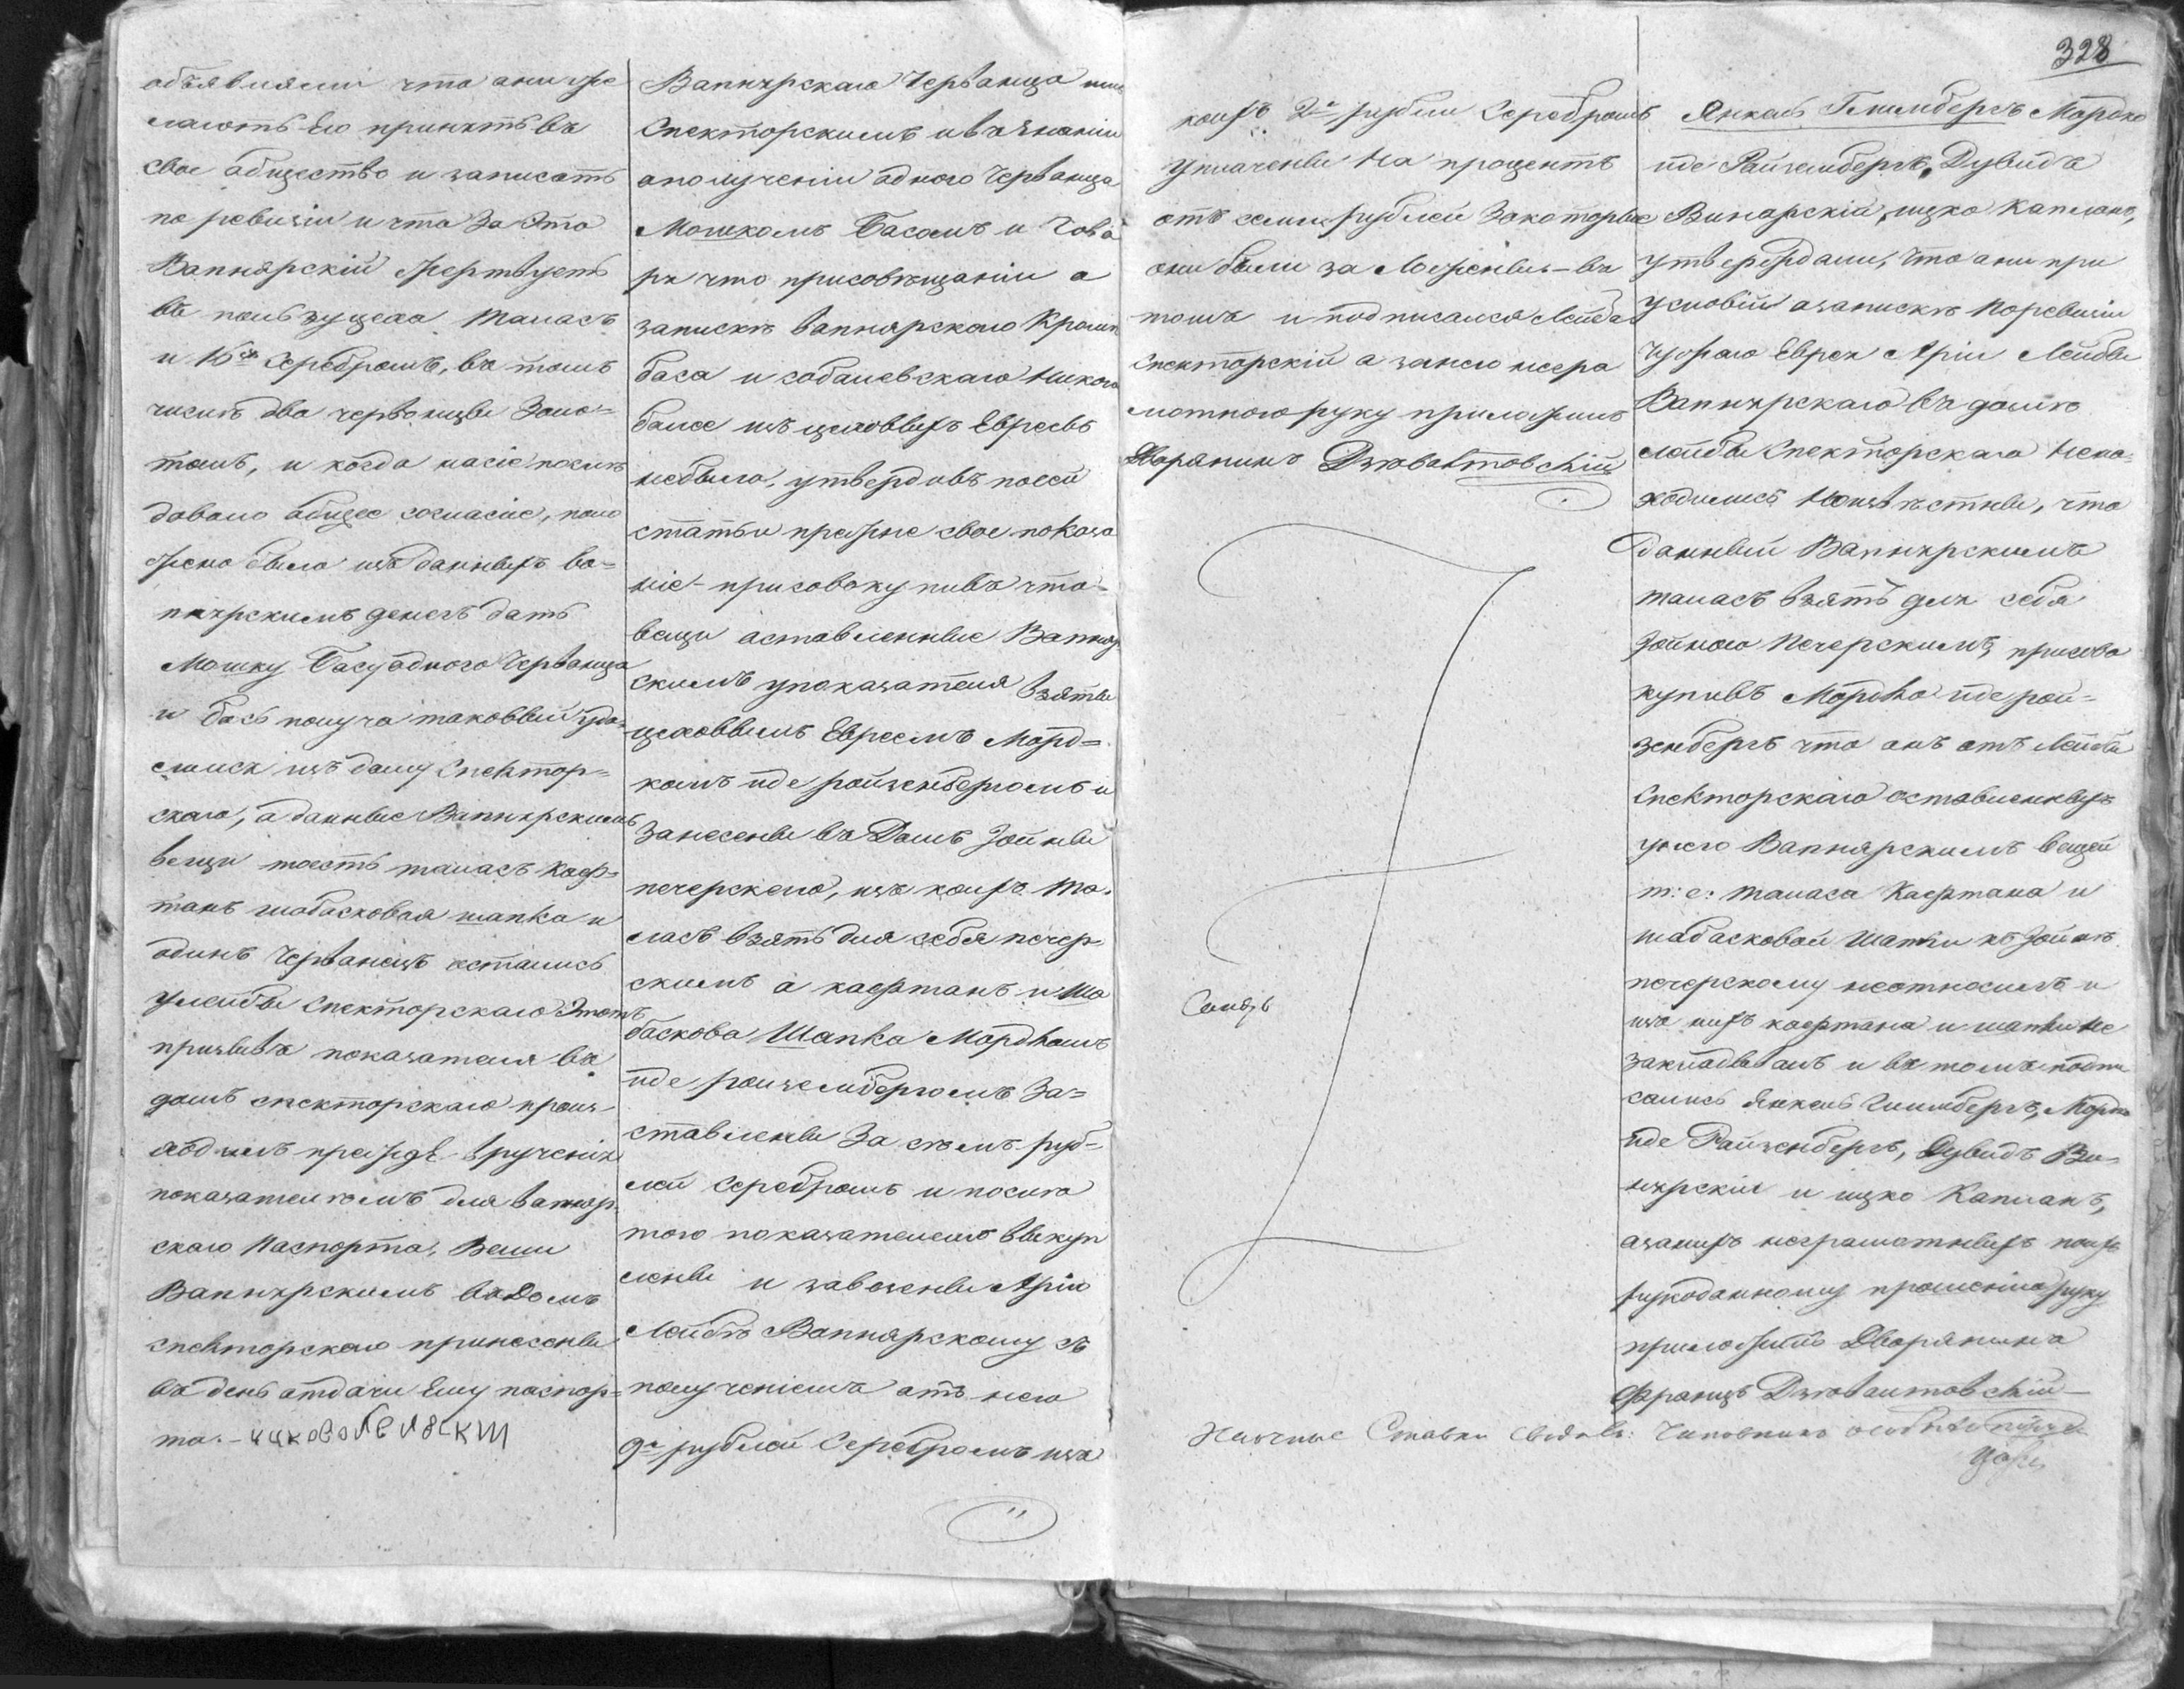 объявляли что они же
лаютъ Его принять въ
свое абщество и записать
по ревизіи и что За Это
Вапнярскій жертвуетъ
въ пользу цеха Таласъ
и 16 Серебромъ, въ томъ
числѣ два червонцы Золо=
томъ, и когда на сіе послѣ
довало абщее согласіе, поло
жено было изъ данныхъ Ва=
пнярскимъ денегъ дать
Мошку Басу адного Червонца
и Басъ получа таковый уда=
лился изъ дому Спектор=
скаго, а данные Вапнярскимъ
вещи тоесть таласъ Каф=
танъ шабасковая шапка и
адинъ Червонецъ астались
у Лейбы Спекторскаго Этотъ
призывъ показателя въ
домъ спекторскаго произ
водилъ прежде врученія
показателемъ для вапняр
скаго Паспорта, Вещи
Вапнярскимъ въ Домъ
спекторскаго принесены
въ день атдачи Ему паспор=
та.
Вапнярскаго Червонца
Спекторскимъ и въ знаніи
аполученіи адного Червонца
Мошкомъ Басомъ и Гово
ря что присовѣщаніи а
запискѣ Вапнярскаго Кромѣ
баса и собалевскаго Никого
балее изъ цеховыхъ Евреевъ
небыло, утвердивъ посей
статьи прежне свое показа
ніе - присовокупивъ что
вещи аставленные Вапняр
скимъ упоказателя взяты
цеховымъ Евреемъ Морд=
комъ иде ройзенбергомъ и
Занесены въ Домъ Зойны
печерскаго, изъ коихъ Та=
ласъ взятъ для себя печер
скимъ а кафтанъ и Ша
баскова Шапка Мордкомъ
иде роизембергомъ За=
ставлены За съемъ руб=
лей Серебромъ и послѣ
того показателемъ выкуп
лены и завезены Арію
Лейбѣ Вапнярскому съ
полученіемъ атъ него
9 рублей Серебромъ изъ
328
коихъ 2 рубли Серебромъ
уплачены На процентъ
отъ семи рублей Закоторые
они были за Ложены - въ
томъ и подписался Лейба
Спекторскій а занего негра
мотного руку приложилъ
Дворянинъ Дзювалтовскій
Янкель Глимбергъ Мордко
иде Райземберкъ, Дувидъ
Винарскій, ицко Капланъ,
утверждали, что ани при
условіи азапискѣ поревизіи
Чужаго Еврея Арія Лейбы
Вапнярскаго въ домѣ
Лейбы Спекторскаго Нена=
ходились Неизвѣстны, что
данный Вапнярскимъ
таласъ взятъ для себя
Зойною Печерскимъ, присово
купивъ Мордко иде рой=
зенбергъ что анъ атъ Лейбы
Спекторскаго оставленныхъ
унего Вапнярскимъ вещей
т: е: таласа Кафтана и
шабасковой Шапки къ Зойнѣ
печерскому неотносилъ и
изъ нихъ кафтана и шапки не
закладывалъ и въ томъ подпи
сались Янкель Глимбергъ, Мордко
иде Райзенбергъ, Дувидъ Ви=
нярскій и ицко Капланъ,
азанихъ неграмотныхъ поихъ
рукоданному прошенію руку
приложилъ Дворянинъ
Францъ Дзювалтовскій
Чиновникъ